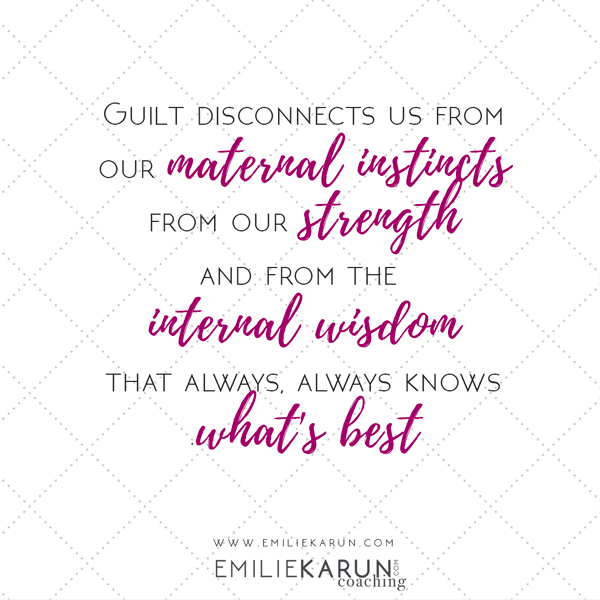 GUILT DISCONNECTS US FROM
OUR maternal instincts
FROM OUR strength
AND FROM THE
internal wisdom
THAT ALWAYS, ALWAYS KNOWS
.what's best
WWW.EMILIEKARUN.COM
EMILIEKARUN.COM
coaching